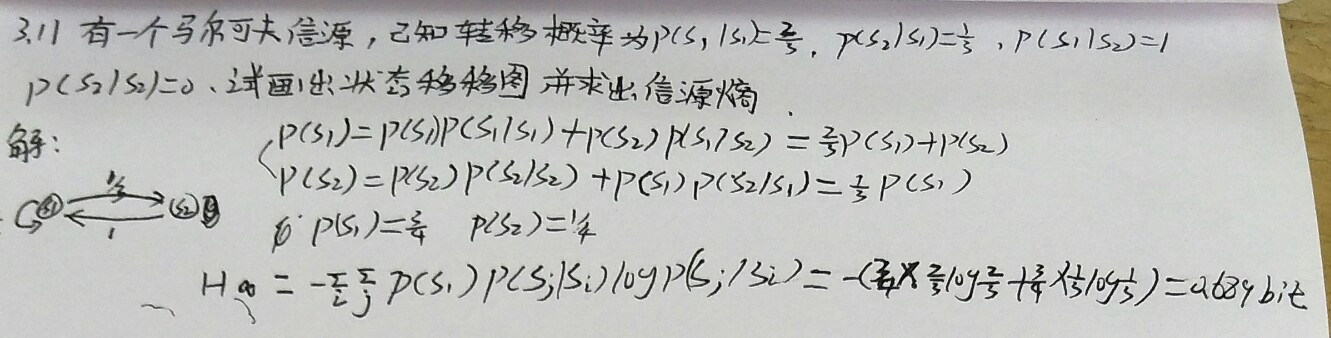 3.11 有一个马尔可夫信源，已知转移概率为p(S₁|S₁)=2/3，p(S₂|S₁)=1/3，P(S₁|S₂)=1
p(S₂|S₂)=0、试画出状态移移图并求出信源熵.
解：
P(S₁)=P(S₁)P(S₁|S₁)+P(S₂)P(S₁|S₂)=2/3P(S₁)+P(S₂)
P(S₂)=P(S₂)P(S₂|S₂)+P(S₁)P(S₂|S₁)=1/3P(S₁)
1/3
S₁ S₂
1
P(S₁)=3/4 P(S₂)=1/4
H∞=-∑i∑j P(Sᵢ)P(Sⱼ|Sᵢ)logP(Sⱼ|Sᵢ)=-(3/4×2/3log2/3+3/4×1/3log1/3)=0.689bit